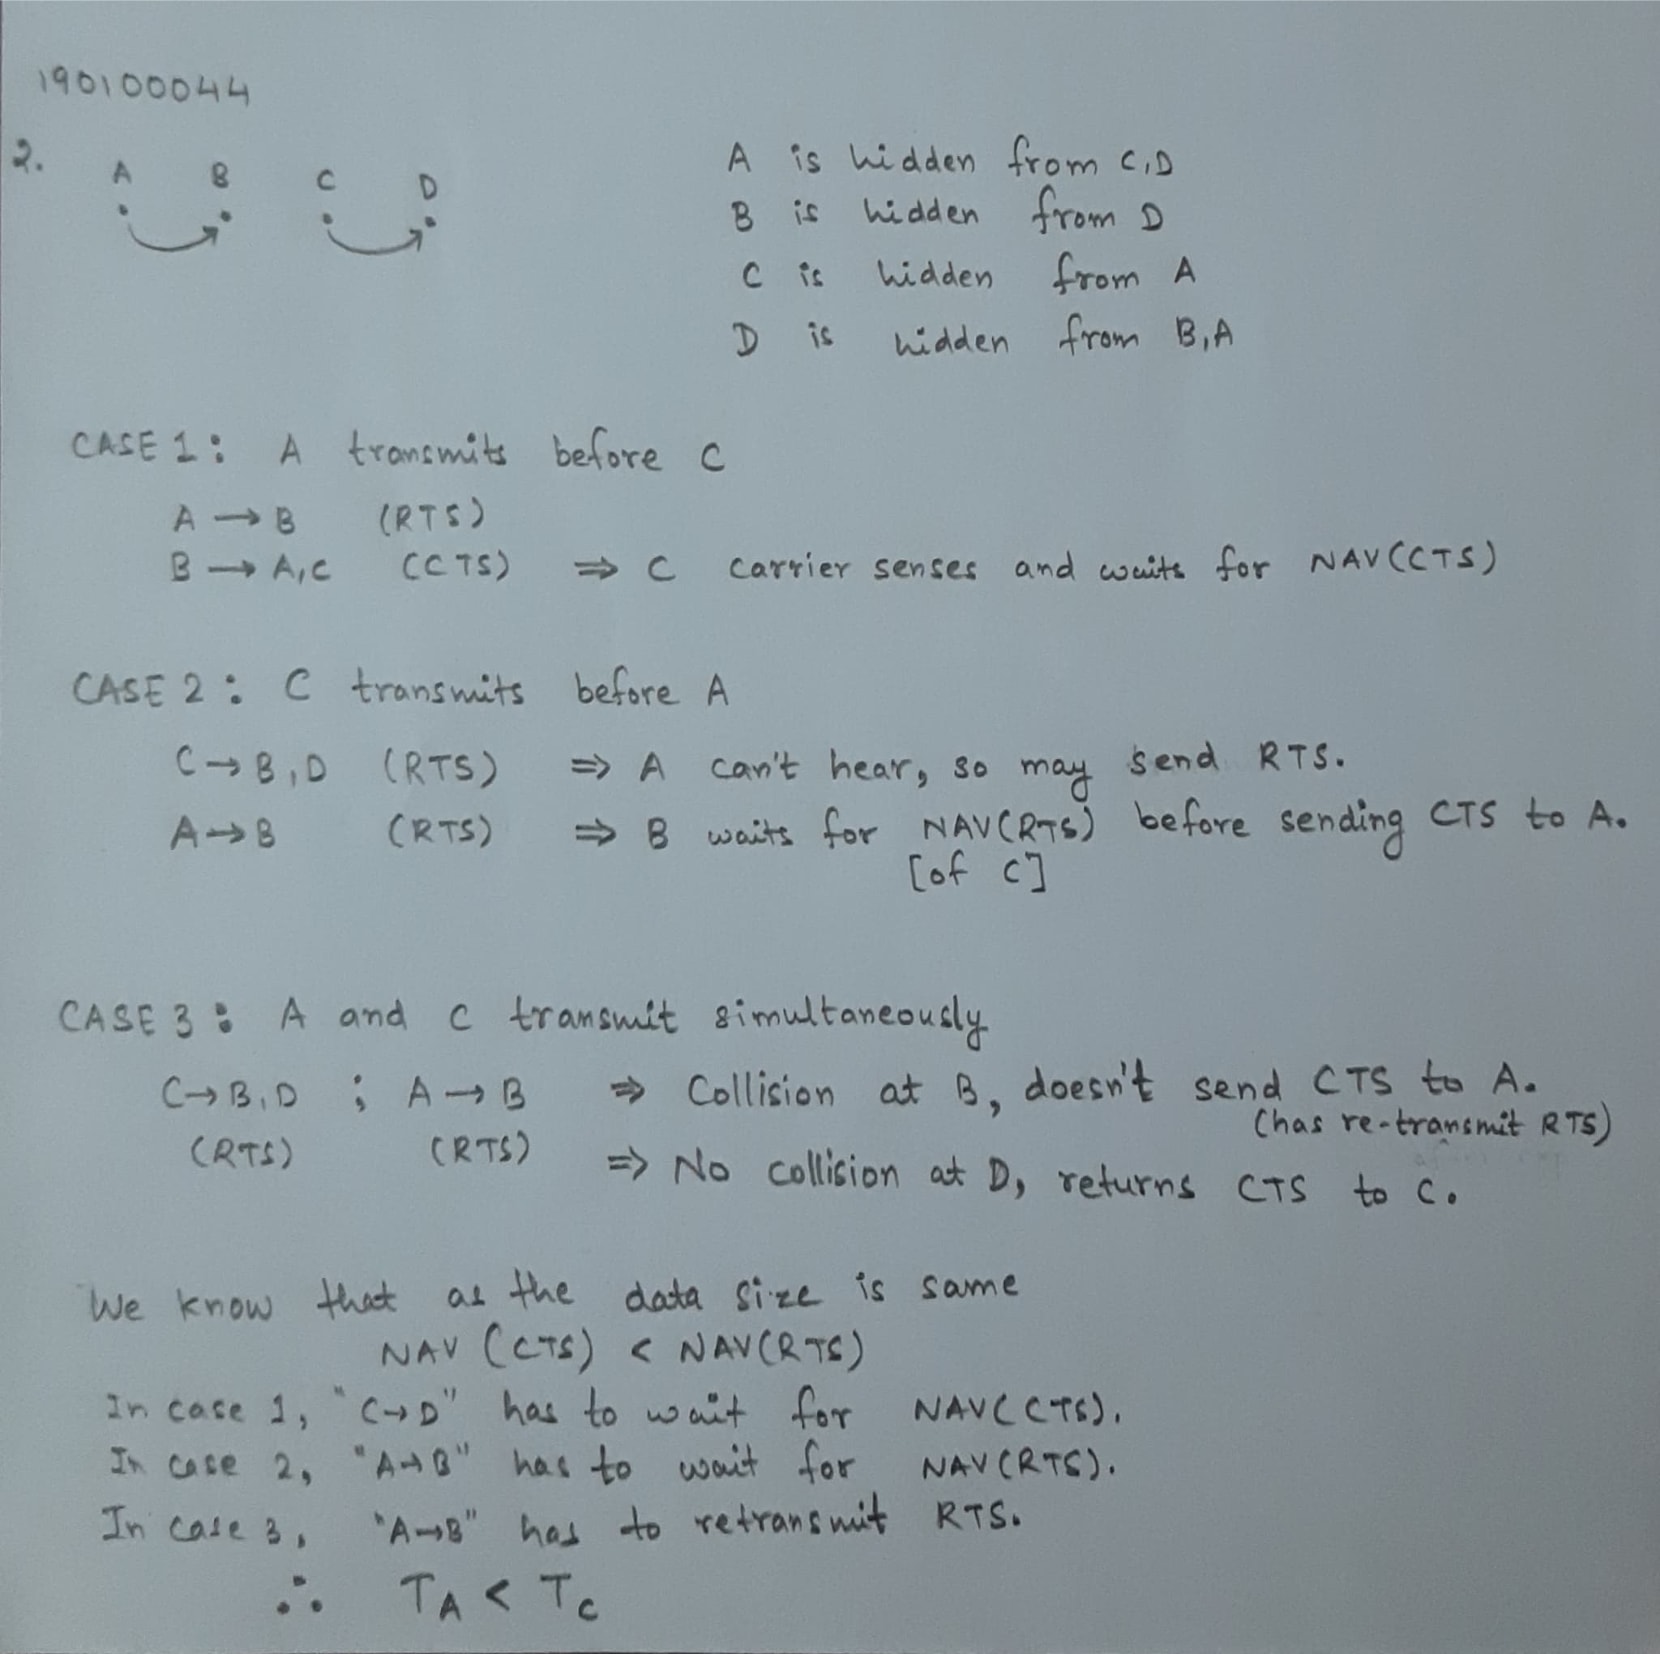 190100044
2.
A B C D
A is hidden from C,D
B is hidden from D
C is hidden from A
D is hidden from B,A
CASE 1: A transmits before C
A → B (RTS)
B → A,C (CTS) ⇒ C carrier senses and waits for NAV(CTS)
CASE 2: C transmits before A
C → B,D (RTS) ⇒ A can't hear, so may send RTS.
A → B (RTS) ⇒ B waits for NAV(RTS) before sending CTS to A.
[of C]
CASE 3: A and C transmit simultaneously
C → B,D ; A → B ⇒ Collision at B, doesn't send CTS to A.
(has re-transmit RTS)
(RTS) (RTS)
⇒ No collision at D, returns CTS to C.
We know that as the data size is same
NAV (CTS) < NAV(RTS)
In case 1, "C→D" has to wait for NAV(CTS).
In case 2, "A→B" has to wait for NAV(RTS).
In case 3, "A→B" has to retransmit RTS.
∴ T_A < T_C